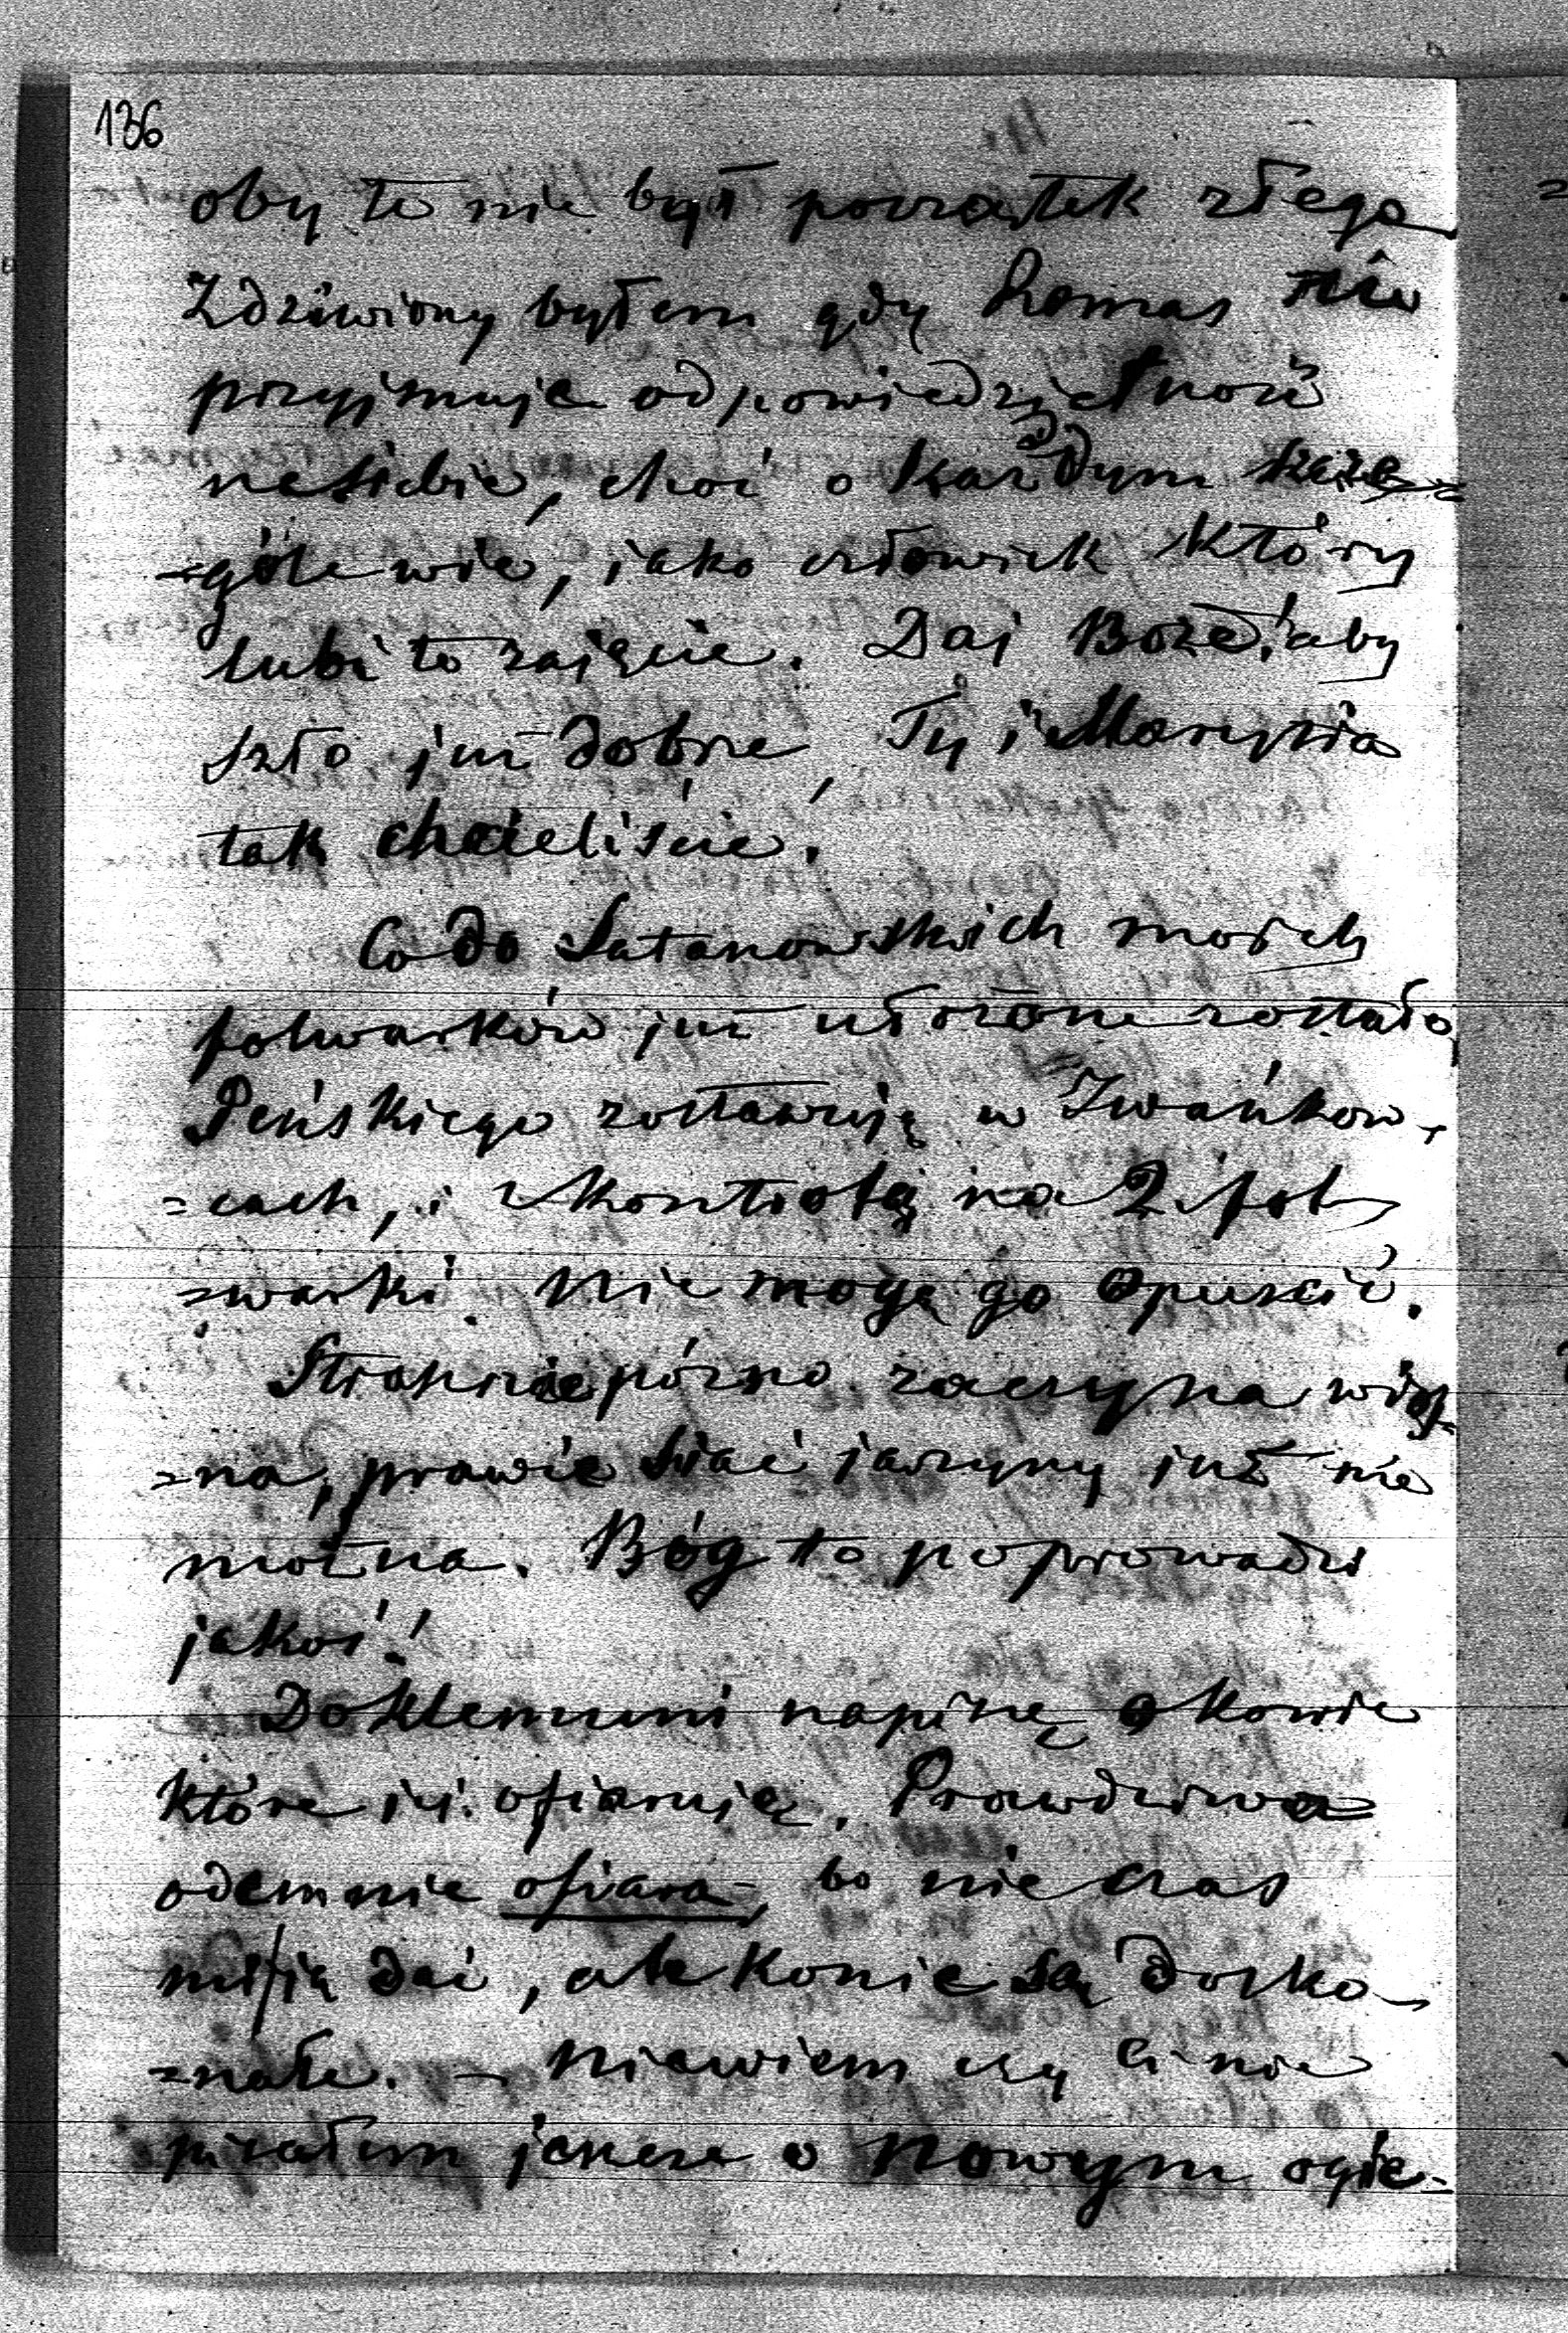 136
oby to nie był początek złego
Zdziwiony byłem gdy Lomas nie
przyjmuje odpowiedzialność
na siebie, choć o każdym szcze=
=góle wie, jako człowiek który
lubi to zajęcie. Daj Boże! aby
szło już dobrze, Ty i Marysia
tak chcieliście.
Co do Satanowskich moich
folwarków już ułożone zostało,
Deńskiego zostawiją w Iwańkow=
=cach, i z kontrolą na 2 fol=
=warki. Nie mogę go opuścić.
Strasznie późno zaczyna wios=
=na, prawie siać jarzyny już nie
można. Bóg to poprowadzi
jakoś!
Do Klemuni napiszę o konie
które jej ofiaruję. Prawdziwa
odemnie ofiara, bo nie czas
mi ją dać, ale konie są dosko=
=nałe. – Niewiem czy Ci nie
pisałem jeszcze o nowym ogie=